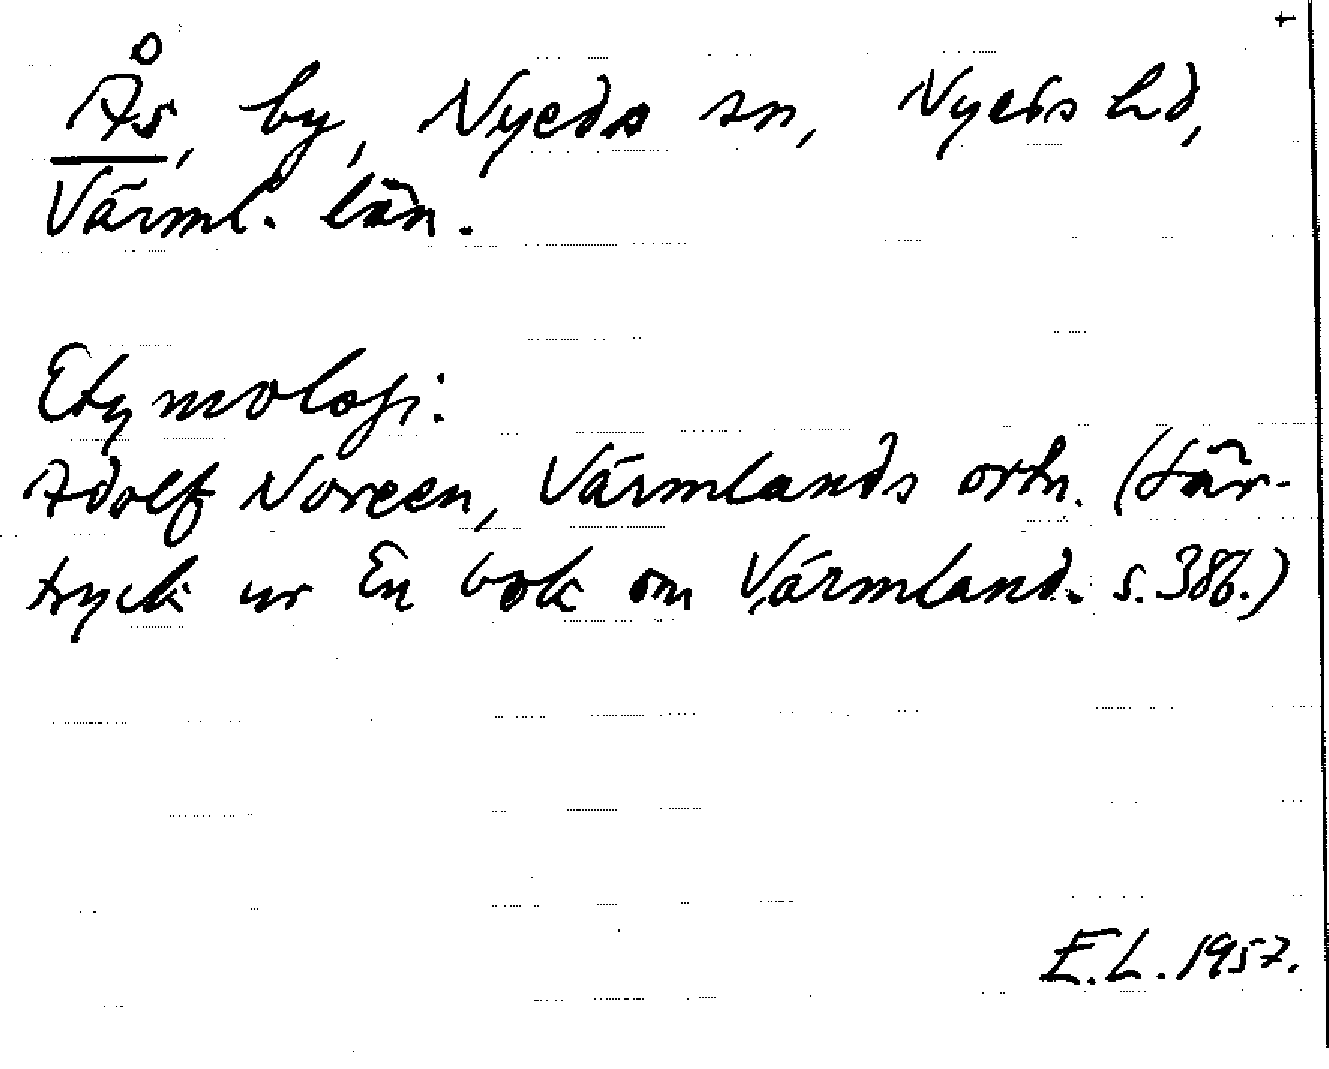 Ås, by, Nyeds sn, Nyeds hd,
Värml. län.
Etymologi:
Adolf Noreen, Värmlands ortn. (Sär-
tryck ur En bok om Värmland. s. 386.)
E.L. 1957.